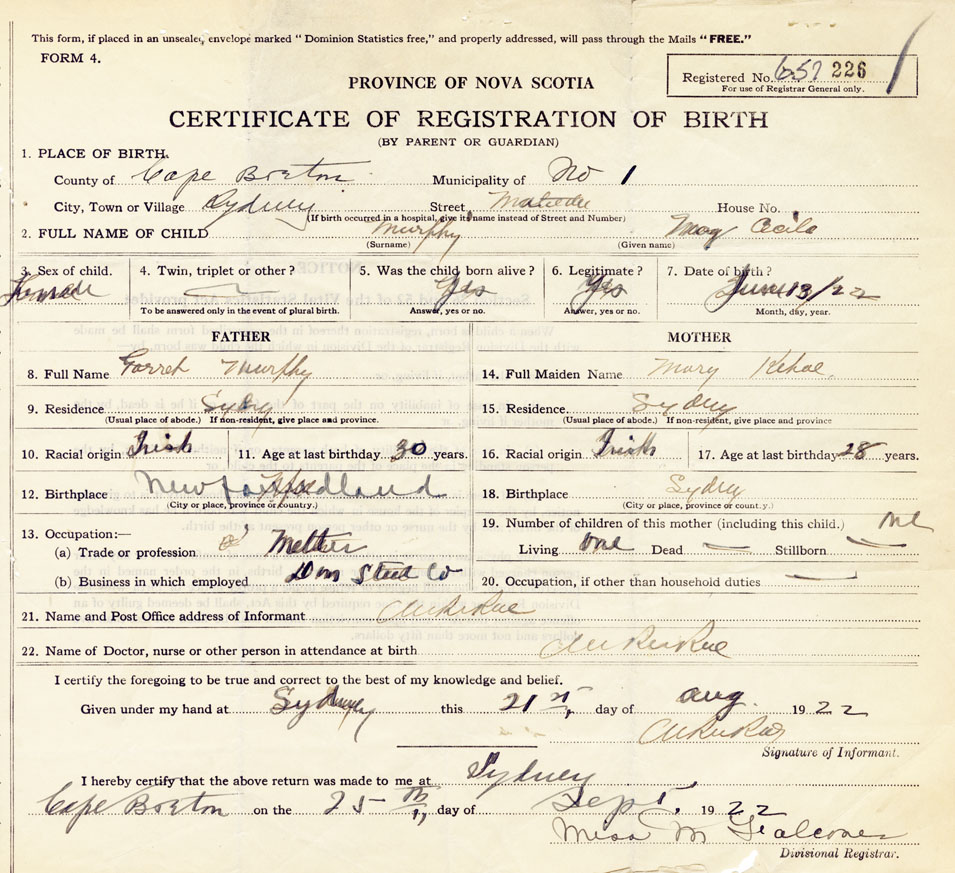 This form, if placed in an unsealed envelope marked "Dominion Statistics free," and properly addressed, will pass through the Mails "FREE."
FORM 4.
Registered No. 657 226
For use of Registrar General only.
PROVINCE OF NOVA SCOTIA
CERTIFICATE OF REGISTRATION OF BIRTH
(BY PARENT OR GUARDIAN)
1. PLACE OF BIRTH.
County of Cape Breton Municipality of No 1
City, Town or Village Sydney Street House No.
(If birth occurred in a hospital, give its name instead of Street and Number)
2. FULL NAME OF CHILD Murphy
(Surname) (Given name)
3. Sex of child. 4. Twin, triplet or other? 5. Was the child born alive? 6. Legitimate? 7. Date of birth?
Female Yes Yes June 13/22
To be answered only in the event of plural birth. Answer, yes or no. Answer, yes or no. Month, day, year.
FATHER MOTHER
8. Full Name Garret Murphy 14. Full Maiden Name Mary Kehoe
9. Residence Sydney 15. Residence Sydney
(Usual place of abode.) If non-resident, give place and province. (Usual place of abode.) If non-resident, give place and province
10. Racial origin Irish 11. Age at last birthday 30 years. 16. Racial origin Irish 17. Age at last birthday 28 years.
12. Birthplace Newfoundland 18. Birthplace Sydney
(City or place, province or country.) (City or place, province or country.)
19. Number of children of this mother (including this child.) one
13. Occupation:—
(a) Trade or profession Melter Living one Dead — Stillborn —
(b) Business in which employed Dom Steel Co 20. Occupation, if other than household duties
21. Name and Post Office address of Informant
22. Name of Doctor, nurse or other person in attendance at birth
I certify the foregoing to be true and correct to the best of my knowledge and belief.
Given under my hand at Sydney this 21st day of Aug 1922
Signature of Informant.
I hereby certify that the above return was made to me at Sydney
Cape Breton on the 25th day of Sept. 1922
Miss M Falconer
Divisional Registrar.